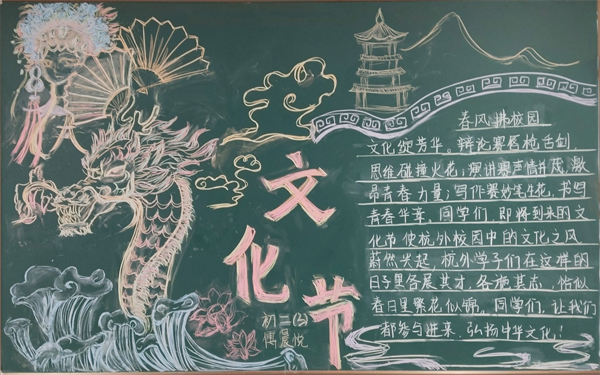 文化节
初二(6)
偶晨悦
春风拂校园
文化颂芳华,辩论赛唇枪舌剑,
思维碰撞火花;演讲赛声情并茂,激
昂青春力量;写作赛妙笔生花,书写
青春华章。同学们,即将到来的文
化节使杭外校园中的文化之风
蔚然兴起,杭外学子们在这样的
日子里各展其才,各施其志,恰似
春日里繁花似锦。同学们,让我们
都参与进来,弘扬中华文化!